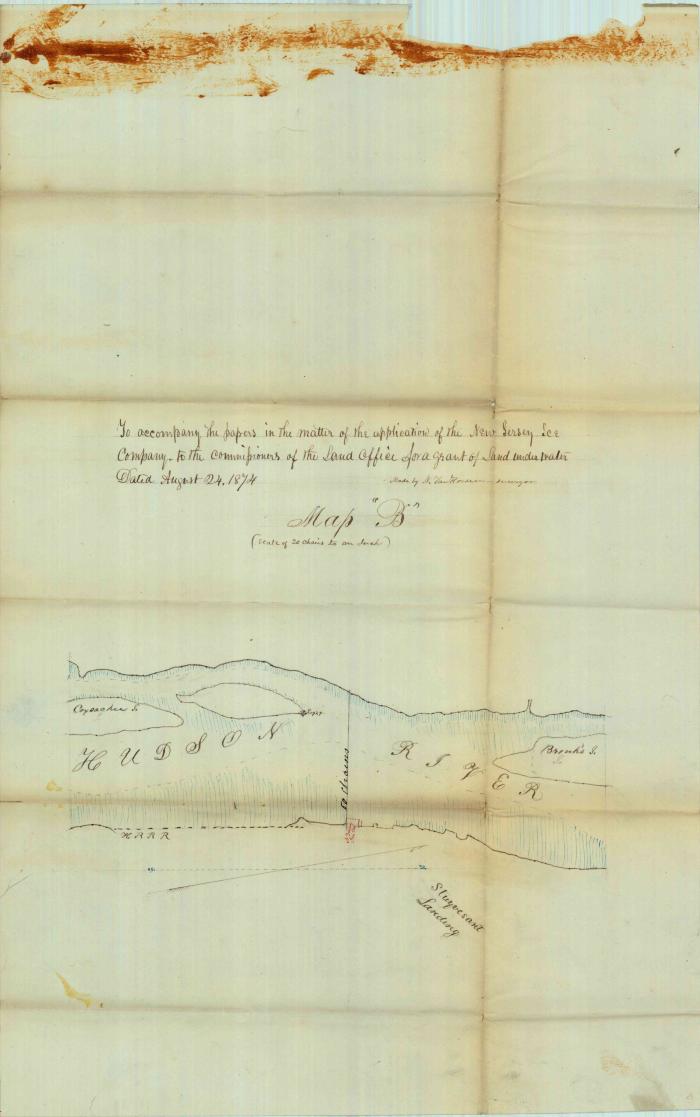 To accompany the papers in the matter of the application of the New Jersey Ice
Company - to the commissioners of the Land Office for a grant of Land under water
Dated August 24, 1874
Made by
surveyor
Map "B"
(Scale of 20 chains to an Inch)
Coxsackie I.
HUDSON RIVER
Bronk's I.
50 Chains
H R R R
Stuyvesant
Landing